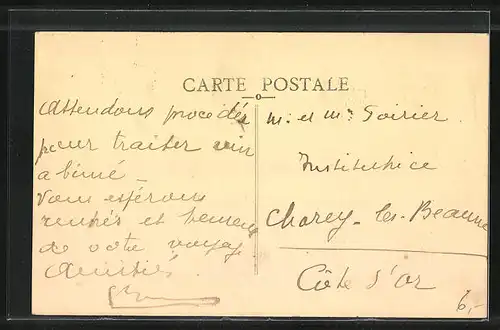 CARTE POSTALE
Attendons procédés
pour traiter vin
abimé -
Vous espérons
rentrés et heureux
de votre voyage
Amitiés.
M. et Mme Poirier
Institutrice
Chorey-les-Beaune
Côte d'Or
6,-